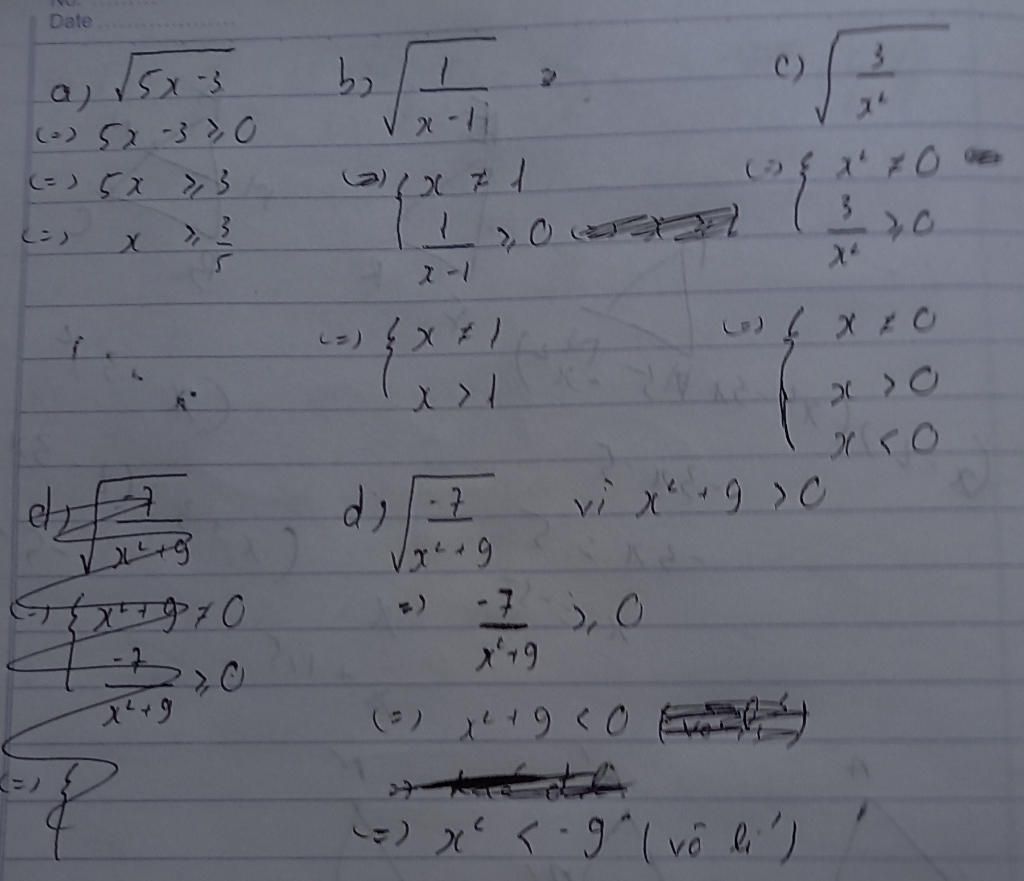 No.
Date
a) √(5x - 3)
(=) 5x - 3 ≥ 0
(=) 5x ≥ 3
(=) x ≥ 3/5
b) √(1/(x - 1))
(=) { x ≠ 1
1/(x - 1) ≥ 0
(=) { x ≠ 1
x > 1
c) √(3/x²)
(=) { x² ≠ 0
3/x² ≥ 0
(=) { x ≠ 0
x > 0
x < 0
d) √(-7/(x² + 9))
(=) { x² + 9 ≠ 0
-7/(x² + 9) ≥ 0
(=) {
d) √(-7/(x² + 9)) vì x² + 9 > 0
=) -7/(x² + 9) ≥ 0
(=) x² + 9 < 0
(=) x² < -9 (vô lí)